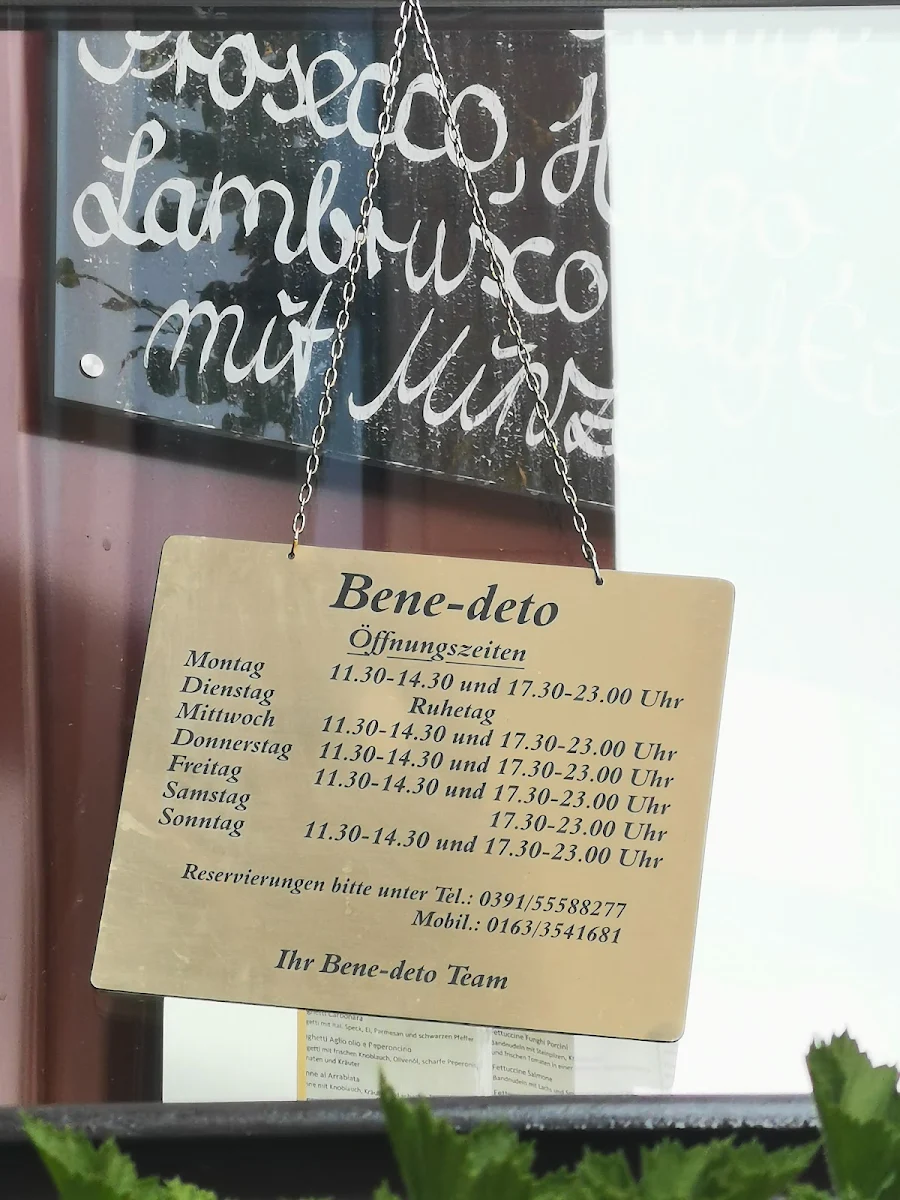 Prosecco,
Lambrusco
mit Münz
Bene-deto
Öffnungszeiten
Montag 11.30-14.30 und 17.30-23.00 Uhr
Dienstag Ruhetag
Mittwoch 11.30-14.30 und 17.30-23.00 Uhr
Donnerstag 11.30-14.30 und 17.30-23.00 Uhr
Freitag 11.30-14.30 und 17.30-23.00 Uhr
Samstag 17.30-23.00 Uhr
Sonntag 11.30-14.30 und 17.30-23.00 Uhr
Reservierungen bitte unter Tel.: 0391/55588277
Mobil.: 0163/3541681
Ihr Bene-deto Team
Carbonara
mit Speck, Ei, Parmesan und schwarzen Pfeffer
ghetti Aglio olio e Peperoncino
getti mit frischen Knoblauch, Olivenöl, scharfe Peperoni
maten und Kräuter
nne al Arrabiata
nne mit Knoblauch,
ettuccine Funghi Porcini
Bandnudeln mit Steinpilzen,
und frischen Tomaten in einer
Fettuccine Salmone
Bandnudeln mit Lachs und